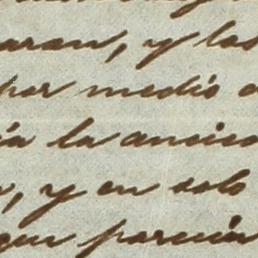 aran, y las
por medio
ía la ancia
, y en solo
que parecia